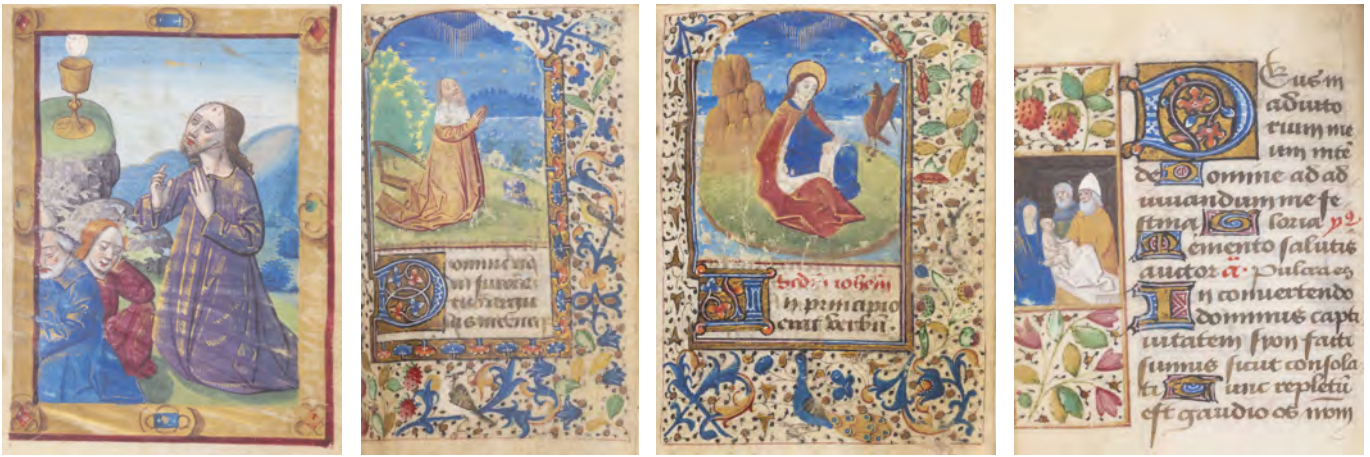 Domine ne
in furore
tuo argu
as me
Scdm iohem
In principio
erat verbū
Deus in
adiuto
rium me
um inte
de Domine ad ad
iuuandum me fe
stina Gloria p
Memento salutis
auctor a. Pulcra es
In conuertendo
dominus capti
uitatem syon facti
sumus sicut consola
ti Tunc repletū
est gaudio os nrm